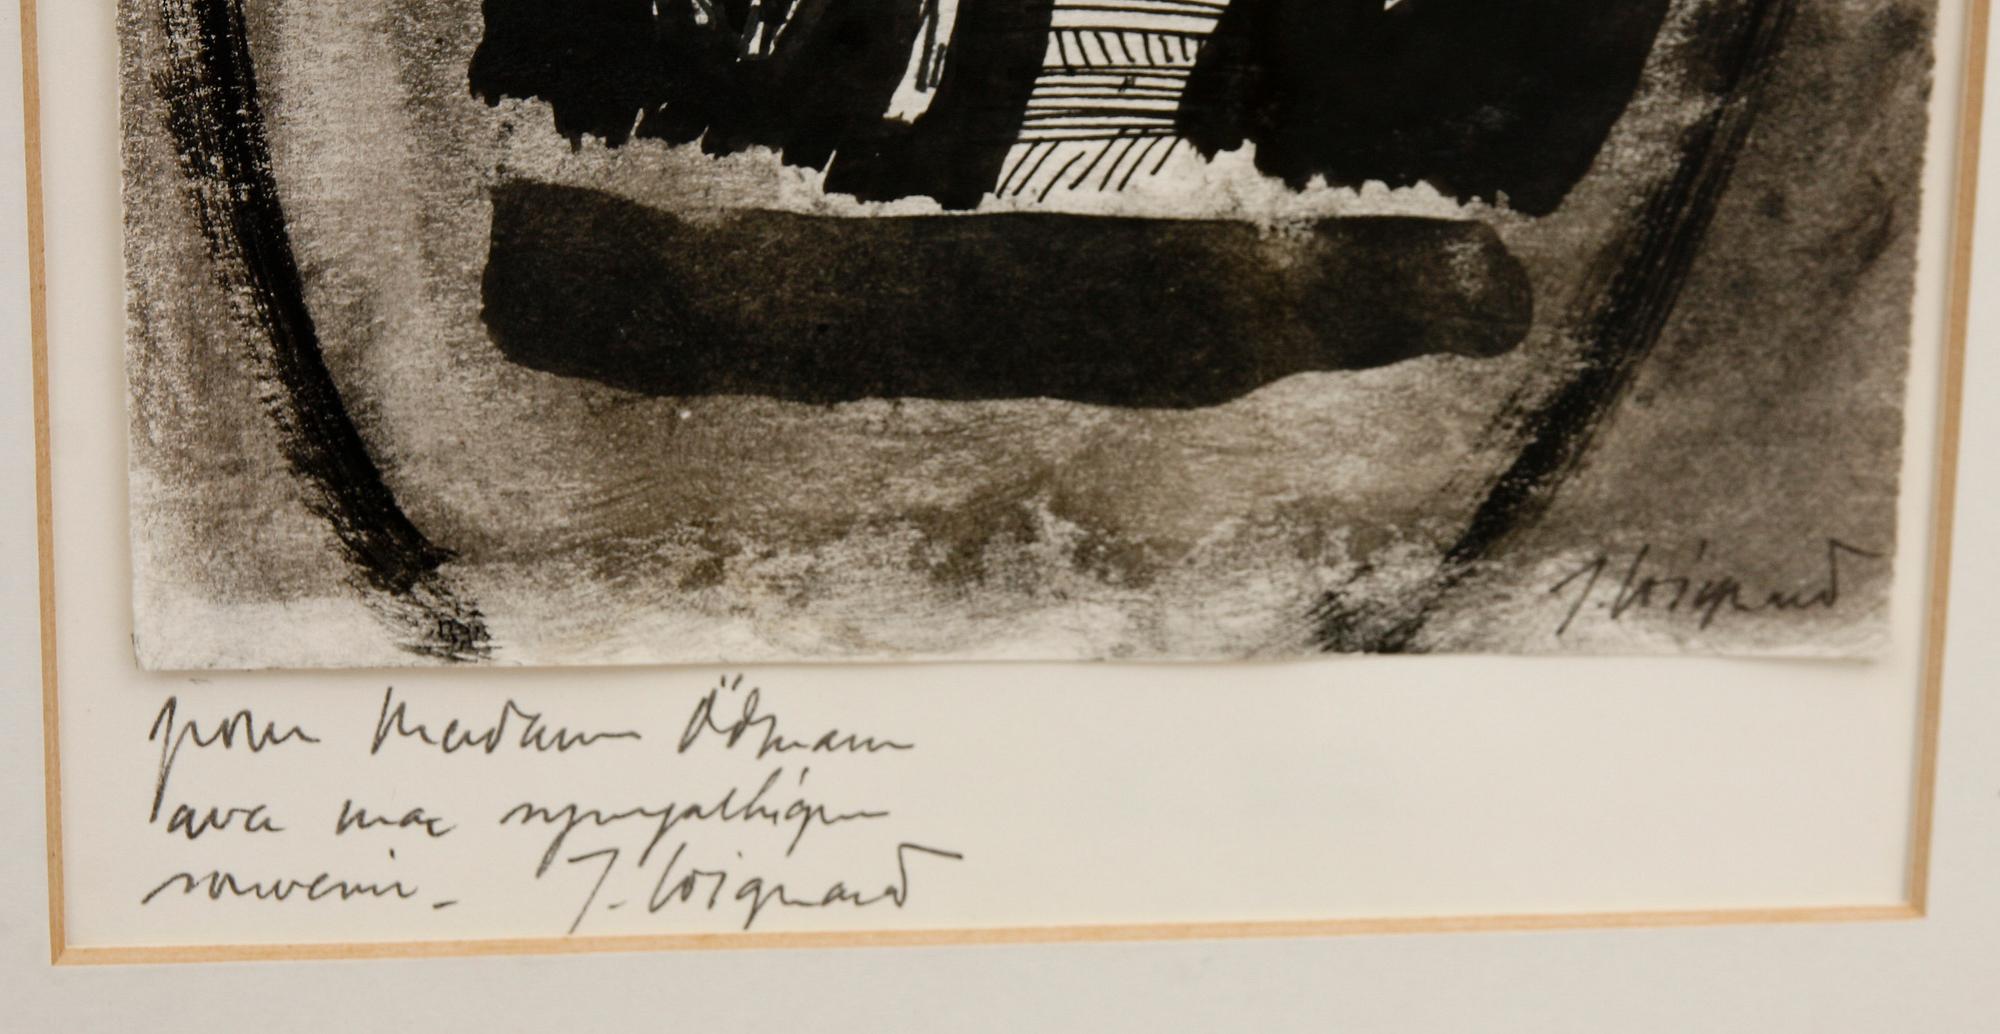 J. Loignard
pour Madame Ödmann
avec mon sympathique
souvenir - J. Loignard